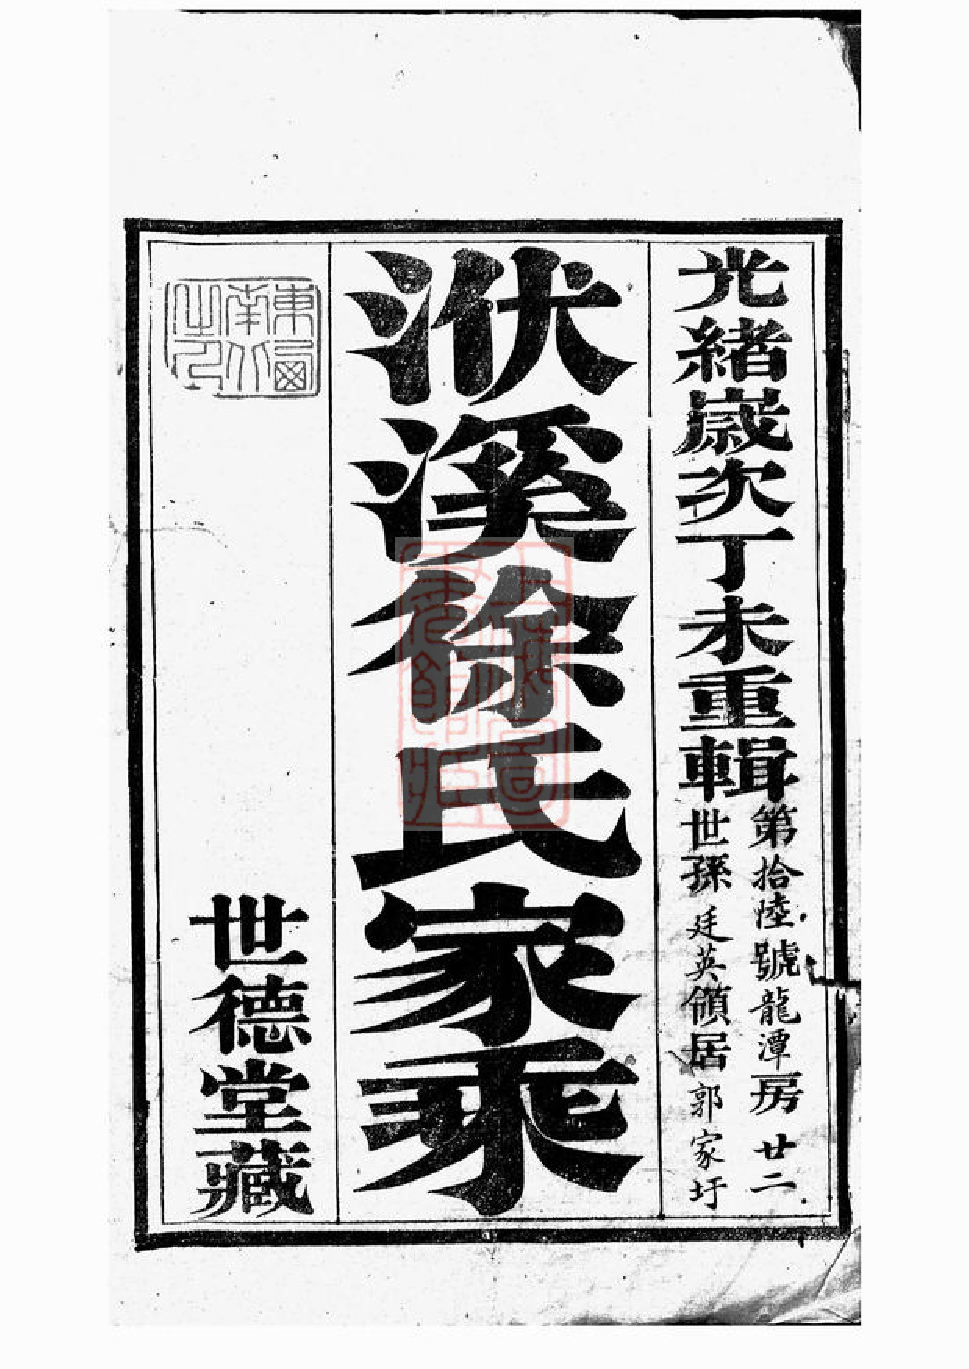 光緒歲次丁未重輯
第拾陸號龍潭房廿二
世孫廷英領居郭家圩
洑溪徐氏家乘
世德堂藏